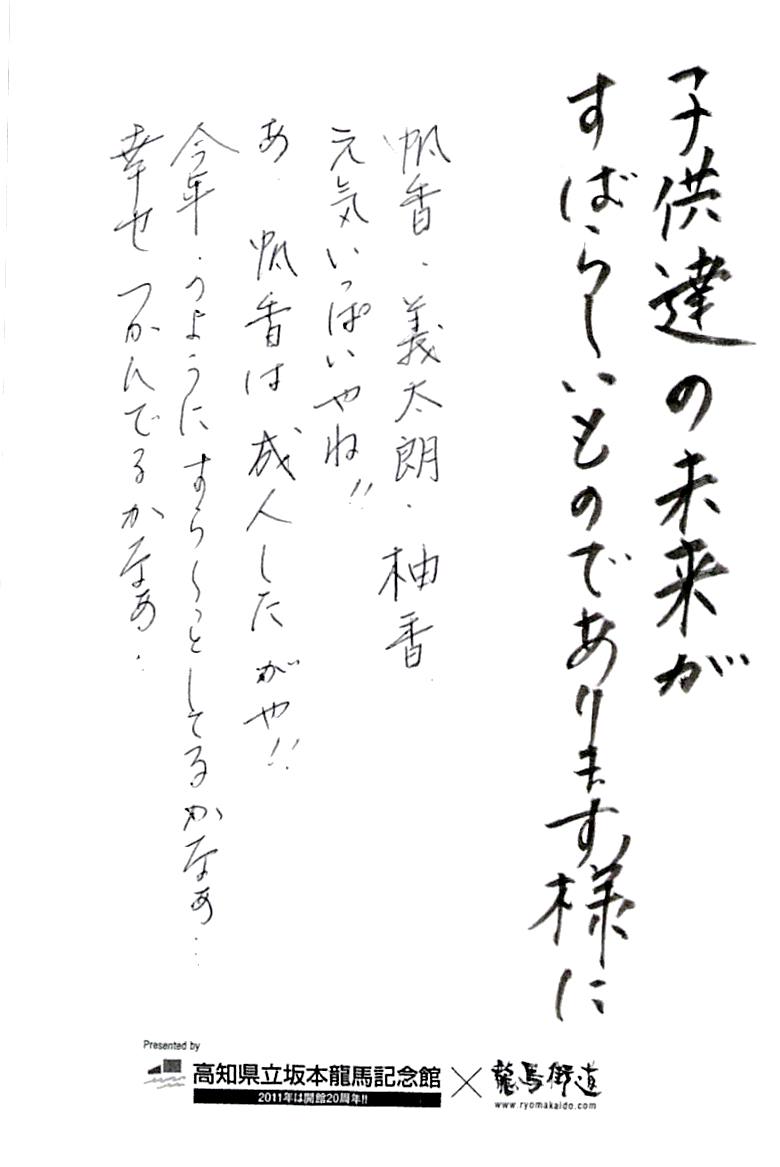 子供達の未来が
すばらしいものであります様に
帆香、義太朗、柚香
元気いっぱいやね!!
あ、帆香は成人したがや!!
今年のようにすらっとしてるかなぁ…
幸せつかんでるかなぁ…
Presented by
高知県立坂本龍馬記念館×龍馬街道
2011年は開館20周年!!
www.ryomakaido.com